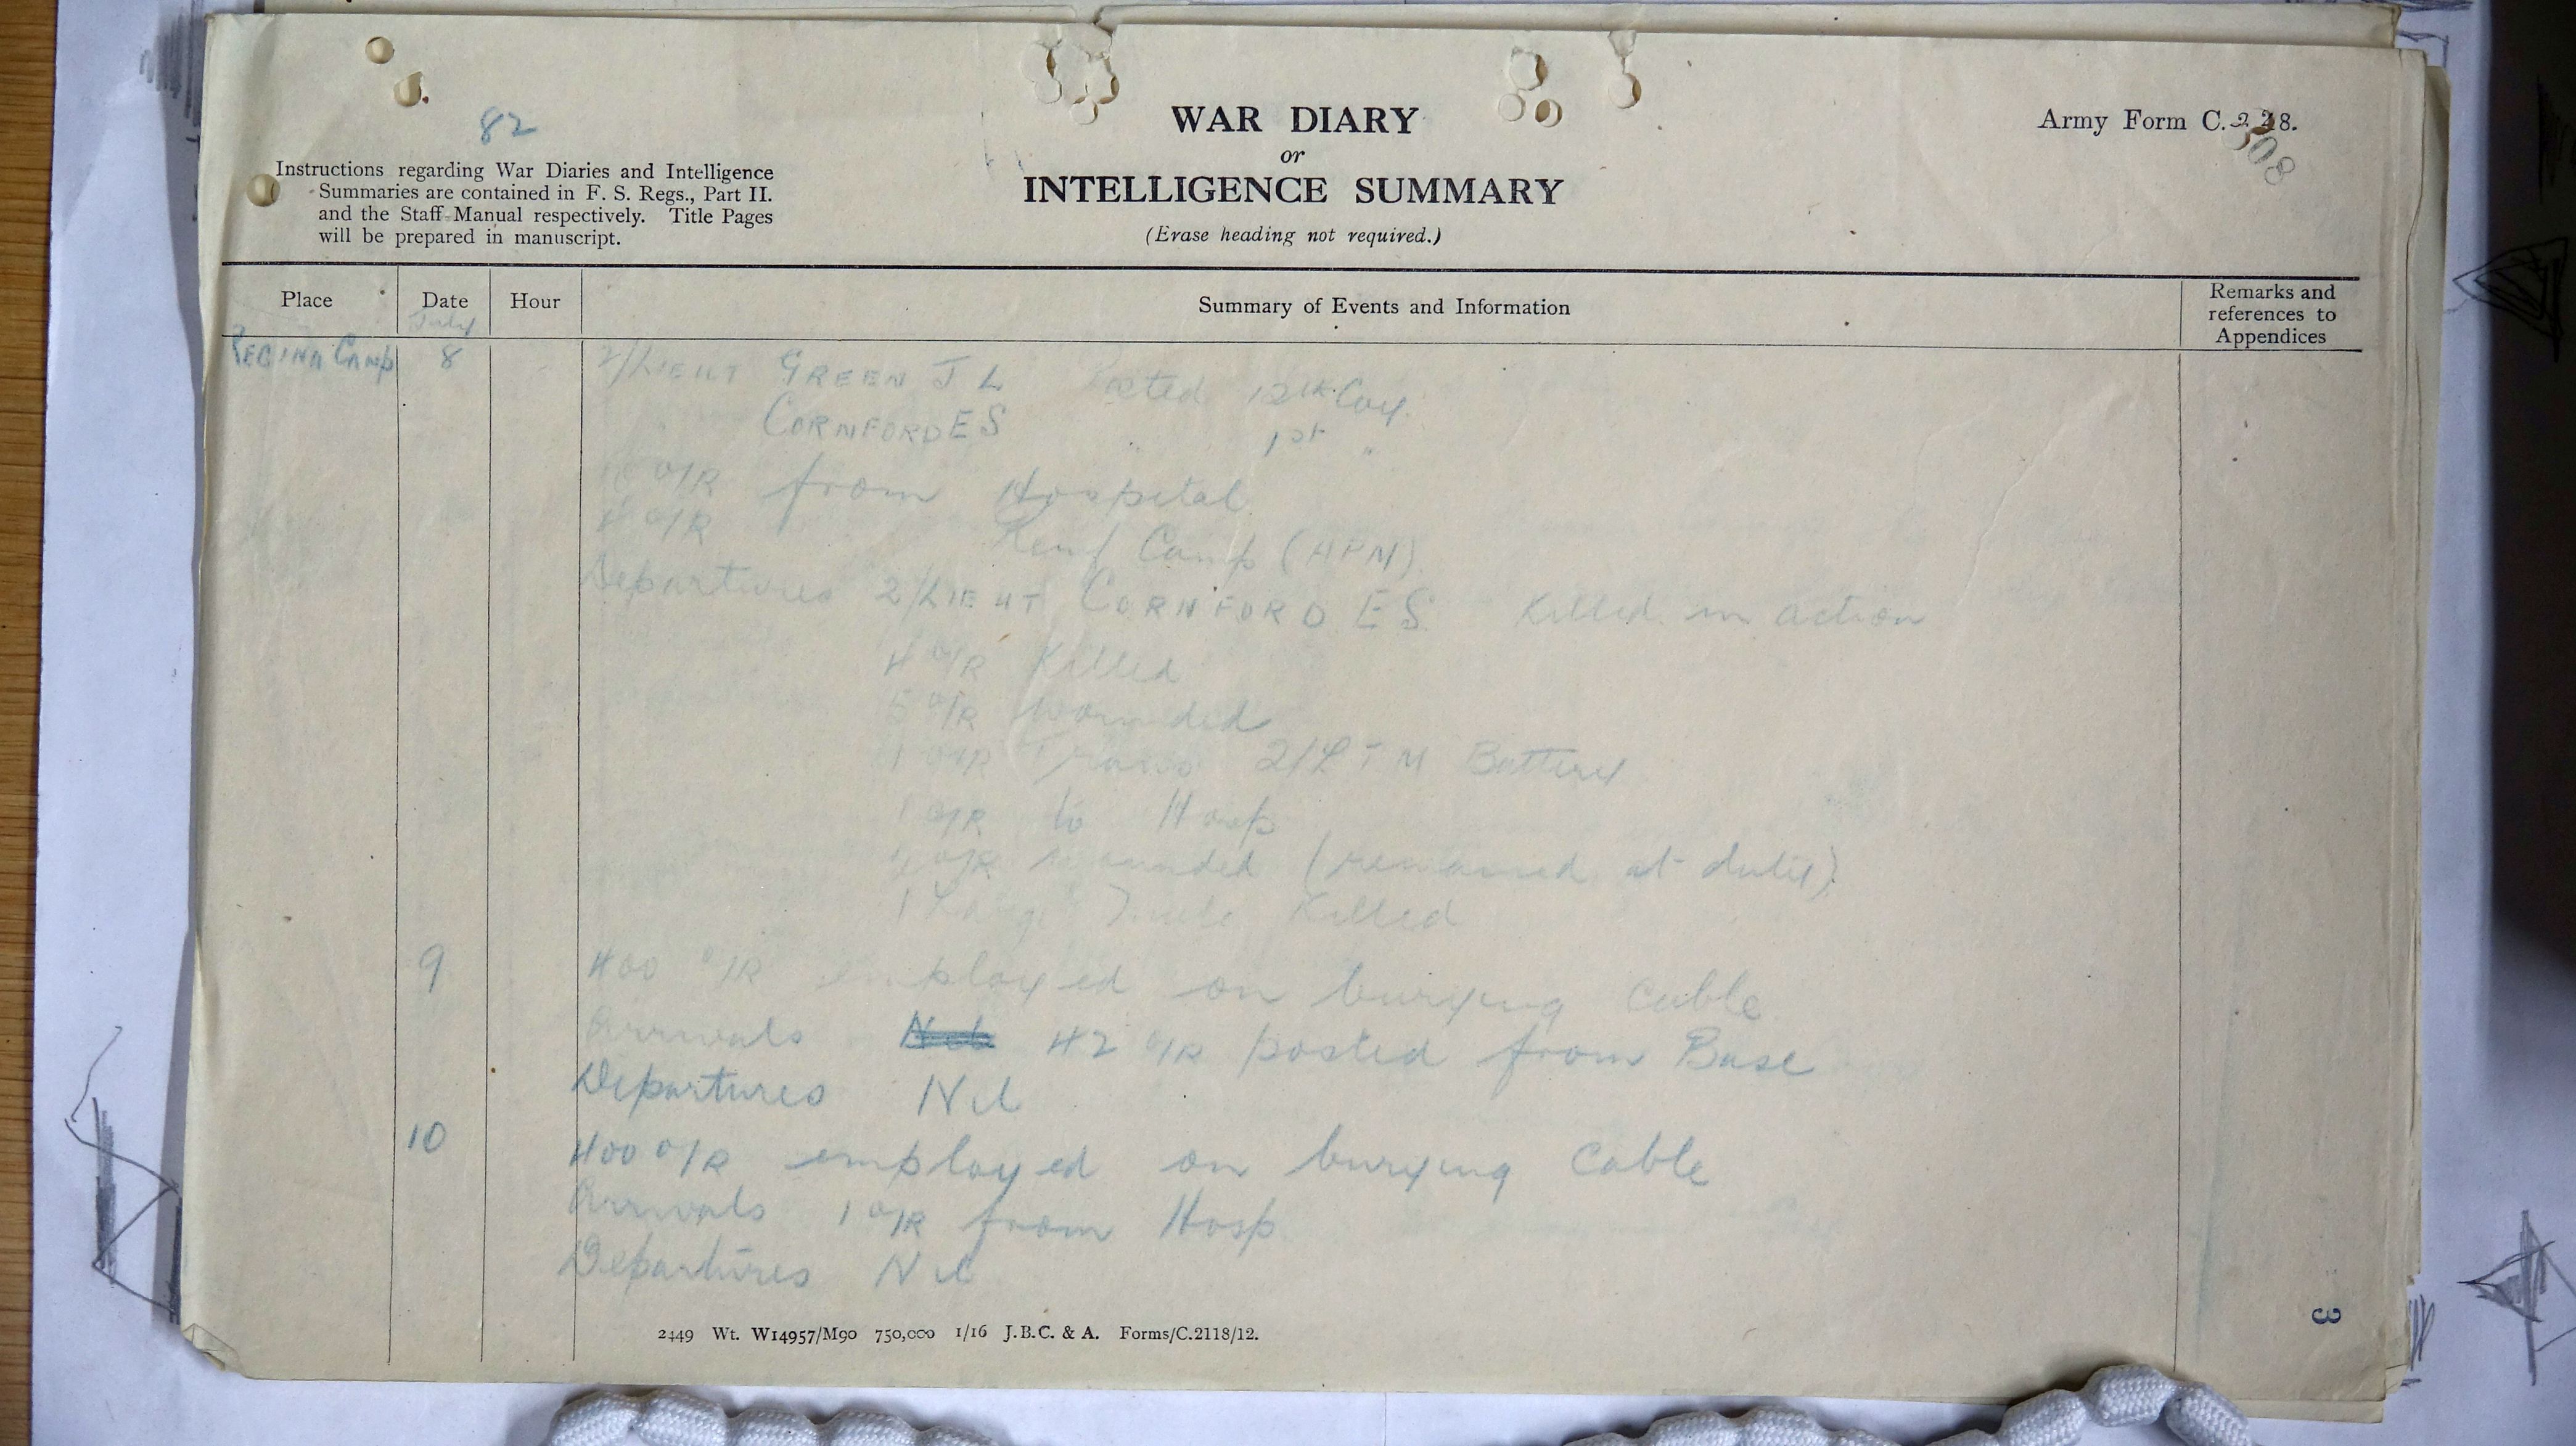 82
WAR DIARY
or
INTELLIGENCE SUMMARY
(Erase heading not required.)
Army Form C. 2118.
308
Instructions regarding War Diaries and Intelligence
Summaries are contained in F. S. Regs., Part II.
and the Staff Manual respectively. Title Pages
will be prepared in manuscript.
Place Date Hour Summary of Events and Information Remarks and references to Appendices
July
REGINA CAMP 8 2/LIEUT GREEN J L Posted 12th Coy.
CORNFORD E S " 1st "
O/R from Hospital
4 O/R Reinf Camp (APM)
Departures 2/LIEUT CORNFORD E S Killed in action
4 O/R Killed
5 O/R wounded
1 O/R Trans 2/L T M Battery
1 O/R to Hosp
O/R wounded (remained at duty)
1 Mule Killed
9 400 O/R employed on burying cable
Arrivals Nil 42 O/R posted from Base
Departures Nil
10 400 O/R employed on burying cable
Arrivals 1 O/R from Hosp
Departures Nil
2449 Wt. W14957/M90 750,000 1/16 J.B.C. & A. Forms/C.2118/12.
3